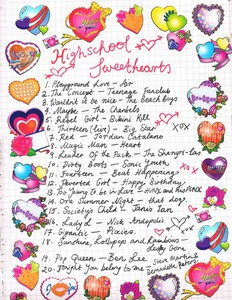 Highschool
Sweethearts
1. Playground Love - Air
2. The Concept - Teenage Fanclub
3. Wouldn't it be nice - The Beach Boys
4. Maybe - The Chantels
5. Rebel Girl - Bikini Kill
6. Thirteen (live) - Big Star
7. Red - Jordan Catalano
8. Magic Man - Heart
9. Leader Of the Pack - The Shangri-las
10. Dirty Boots - Sonic Youth
11. Fourteen - Beat Happening
12. Perverted Girl - Happy Birthday
13. Too Young to be in Love - HUNX and his PUNX
14. One Summer Night - that dog.
15. Society's Child - Janis Ian
XOX
16. Lady D - Nick
17. Gigantic - Pixies
18. Sunshine, Lollipops and Rainbows -
Lesley Gore
19. Pop Queen - Ben Lee
20. Tonight You belong to me
Steve Martin &
Bernadette Peters